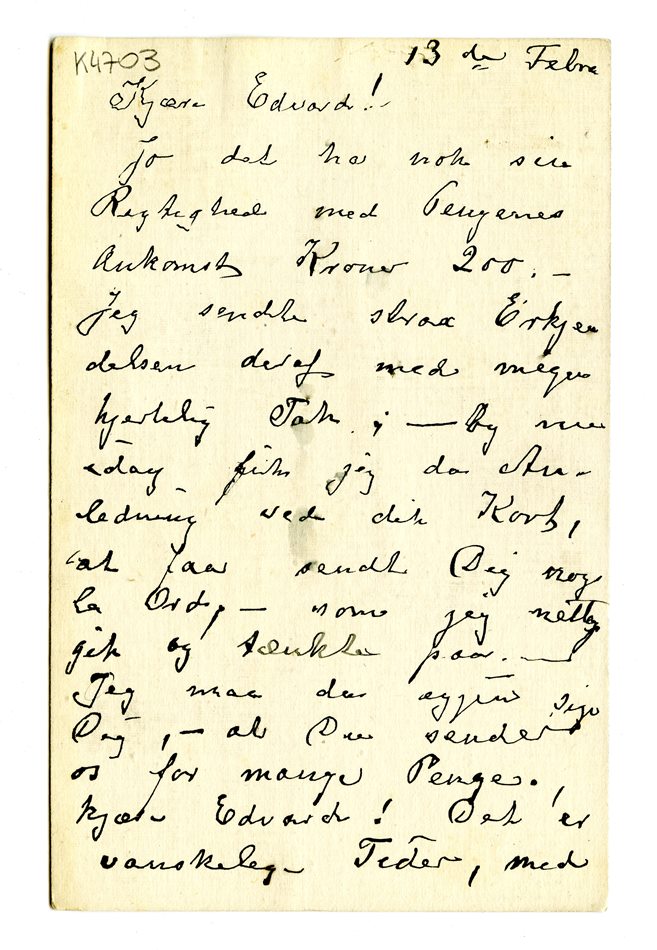 K4703
13 de Febr
Kjære Edvard!
Jo det ha nok sin
Rigtighed med Pengenes
Ankomst Kroner 200. –
Jeg sendte strax Erkjen
delsen deraf med megen
hjertelig Tak ; — og nu
idag fik jeg da An-
ledning ved dit Kort,
at faa sendt Dig nog
le Ord, – som jeg nettop
gik og tænkte paa. —
Jeg maa da igjen sige
Dig, – at Du sender
os for mange Penge.,
kjære Edvard! Det er
vanskelige Tider, med